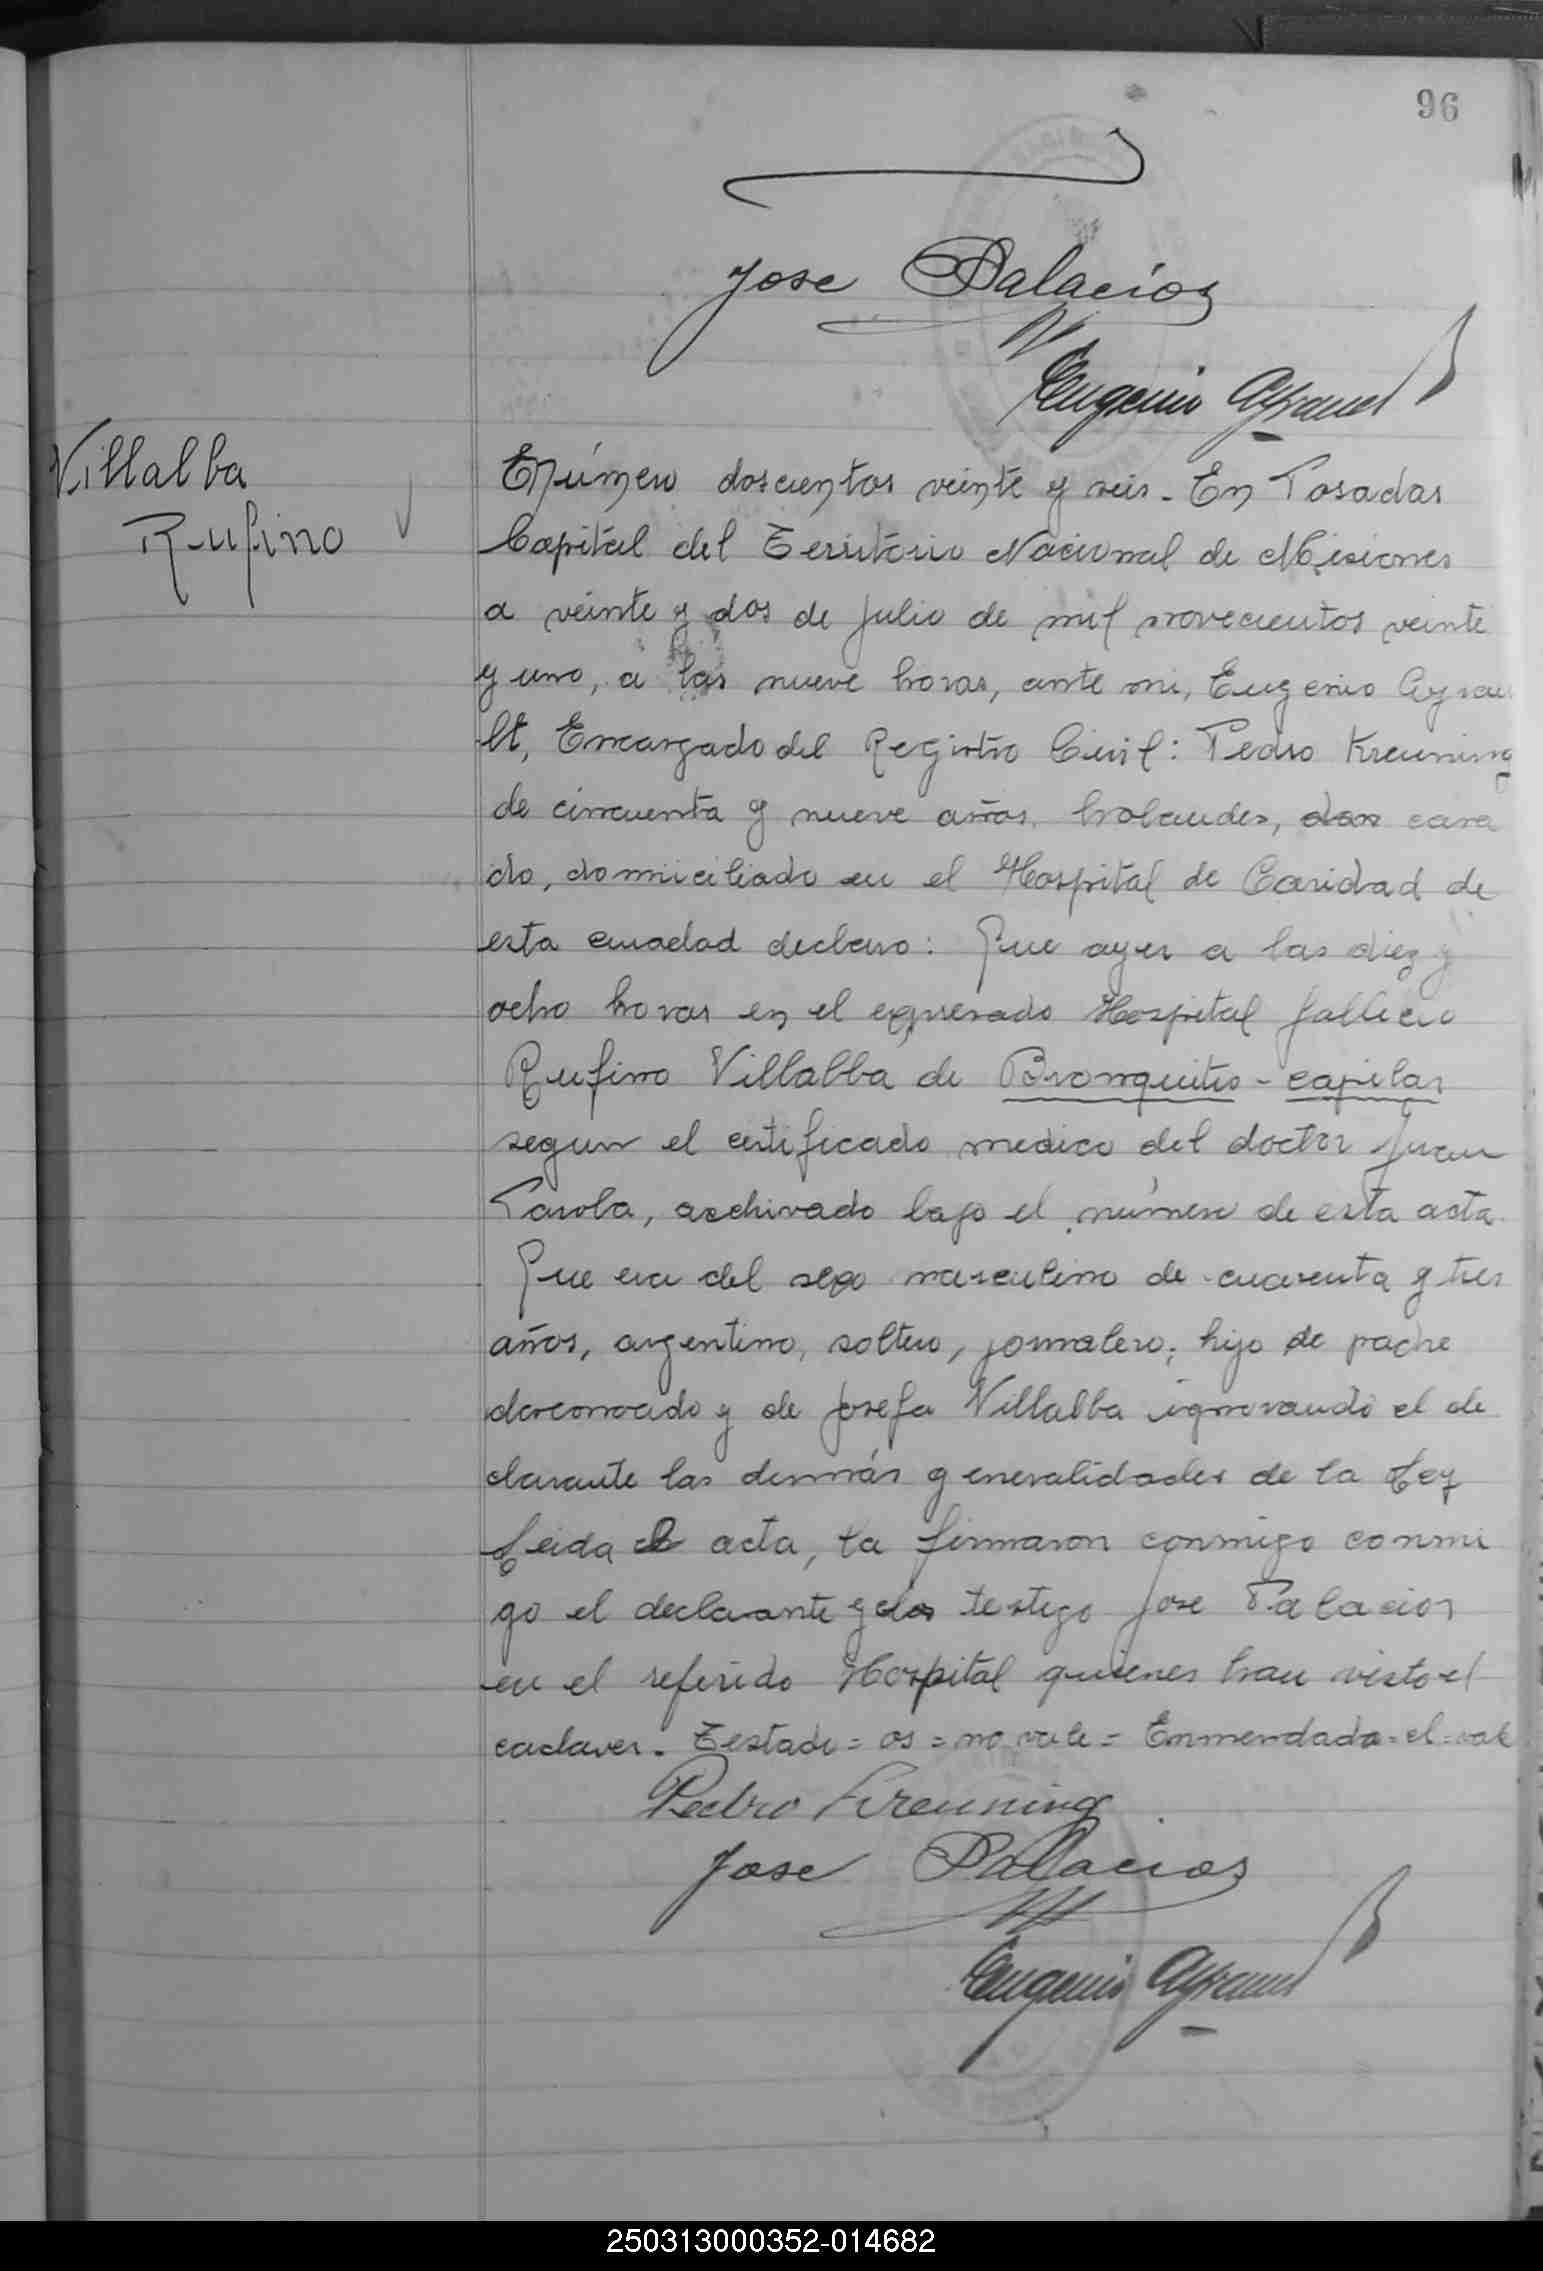 96
Jose Palacios
Eugenio Ayrault
Villalba
Rufino
Número doscientos veinte y seis. En Posadas
Capital del Territorio Nacional de Misiones
a veinte y dos de julio de mil novecientos veinte
y uno, a las nueve horas, ante mi, Eugenio Ayrau
lt, Encargado del Registro Civil: Pedro Kreuning
de cincuenta y nueve años, holandes, casa
do, domiciliado en el Hospital de Caridad de
esta ciudad declaro: Que ayer a las diez y
ocho horas en el expresado Hospital fallecio
Rufino Villalba de Bronquitis - capilar
segun el certificado medico del doctor Juan
Parola, archivado bajo el número de esta acta.
Que era del sexo masculino de cuarenta y tres
años, argentino, soltero, jornalero; hijo de padre
desconocido y de Josefa Villalba ignorando el de
clarante las demás generalidades de la Ley
Leida el acta, la firmaron conmigo conmi
go el declarante y el testigo Jose Palacios
en el referido Hospital quienes han visto el
cadaver. Testado = os = no vale = Enmendado = el = vale
Pedro Kreuning
Jose Palacios
Eugenio Ayrault
250313000352-014682